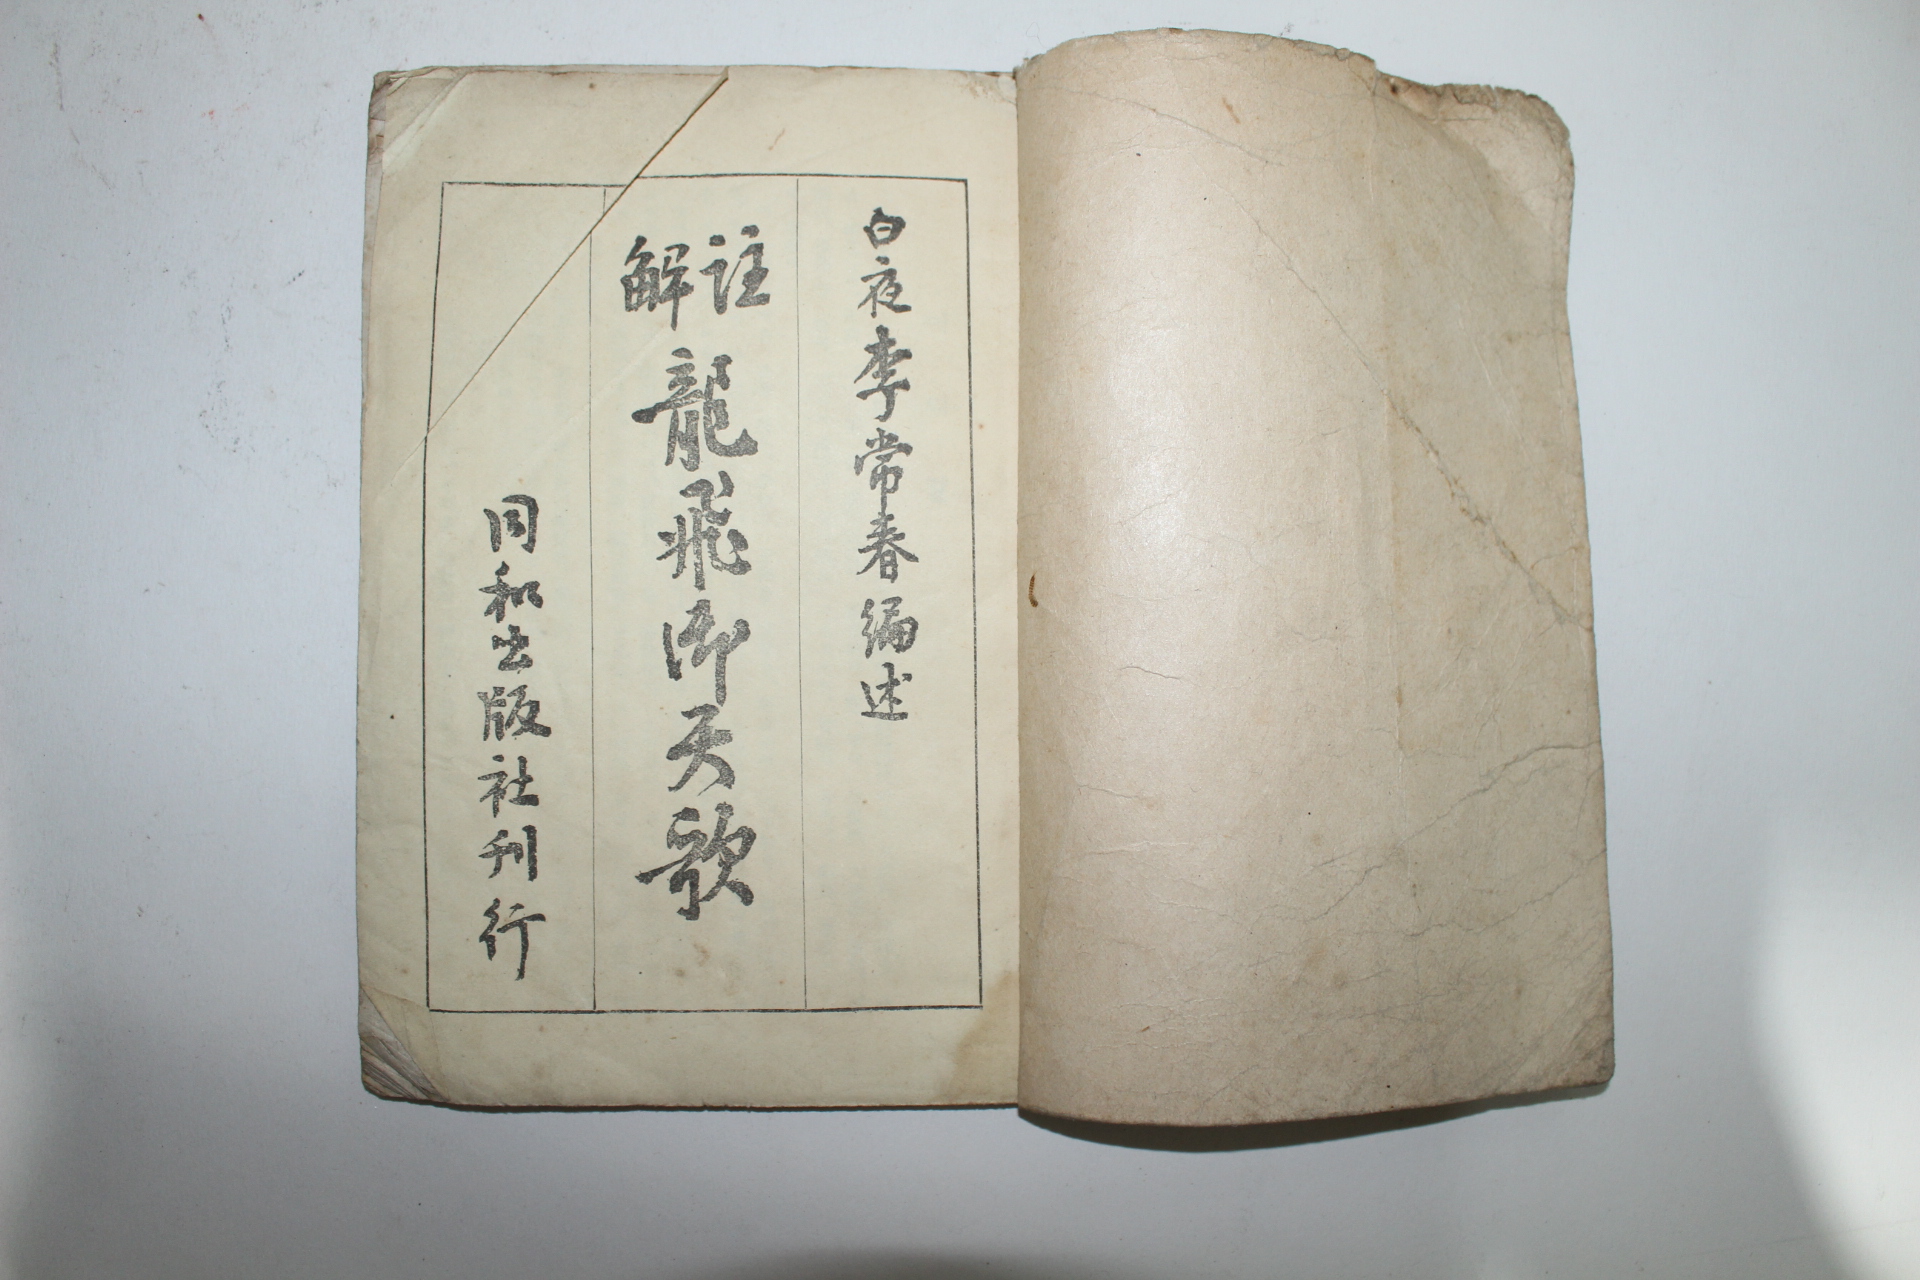 白夜李常春編述
註解 龍飛御天歌
同和出版社刊行